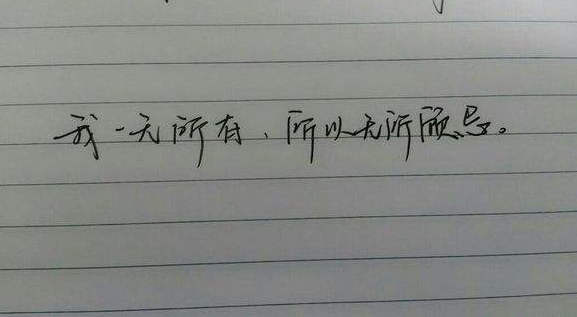 我一无所有、所以无所顾忌。